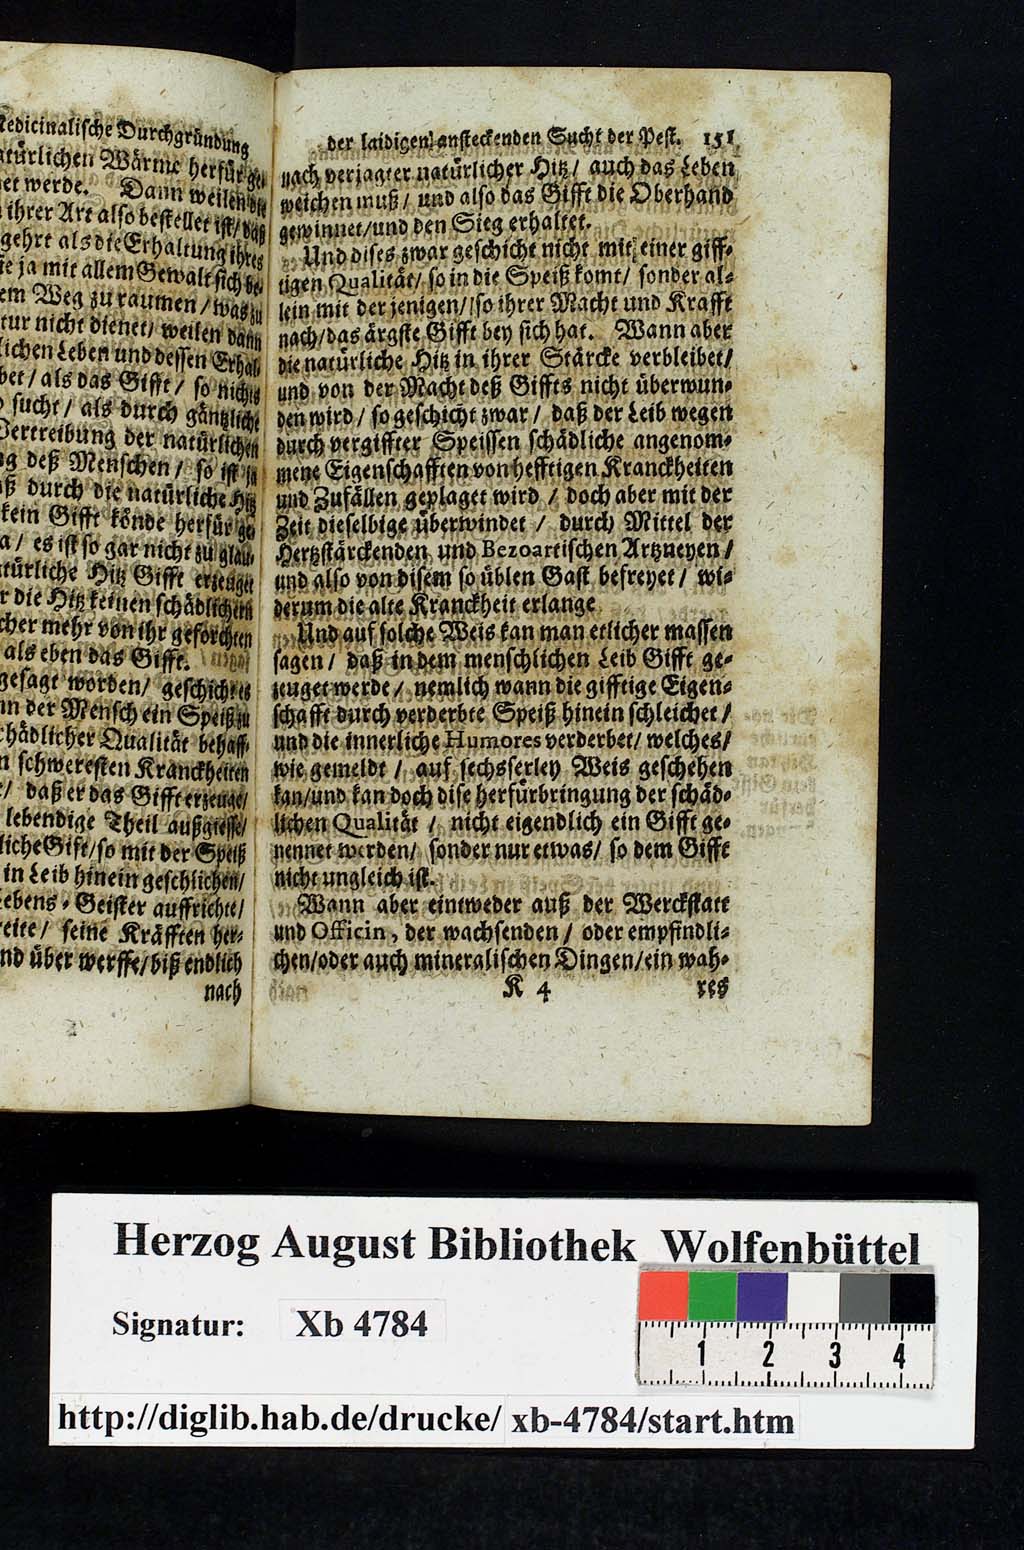 Medicinalische Durchgründung
natürlichen Wärme herfür ge-
net werde. Dann weilen die
ihrer Art also bestellet ist/ daß
gehrt als die Erhaltung ihres
sie ja mit allem Gewalt sich be-
dem Weg zu raumen / was zu
tur nicht dienet/ weilen dann
lichen Leben und dessen Erhal-
bet / als das Gifft / so nichts
sucht / als durch gäntzliche
Vertreibung der natürlichen
ng deß Menschen / so ist ja
aß durch die natürliche Hitz
kein Gifft könde herfür ge-
a / es ist so gar nicht zu glau-
türliche Hitz Gifft erzeuget
r die Hitz keinen schädlichern
cher mehr von ihr geforchten
als eben das Gifft.
gesagt worden/ geschicht es
nn der Mensch ein Speiß zu
chädlicher Qualität behaff-
n schweresten Kranckheiten
t/ daß er das Gifft erzeuge/
lebendige Theil außgiesse/
liche Gift/so mit der Speiß
in Leib hinein geschlichen/
Lebens-Geister auffrichte/
reite / seine Kräfften her-
nd über werffe/biß endlich
nach
der laidigen ansteckenden Sucht der Pest. 151
nach verjagter natürlicher Hitz / auch das Leben
weichen muß / und also das Gifft die Oberhand
gewinnet/und den Sieg erhaltet.
Und dises zwar geschicht nicht mit einer giff-
tigen Qualität/ so in die Speiß komt/ sonder al-
lein mit der jenigen/ so ihrer Macht und Krafft
nach/das ärgste Gifft bey sich hat. Wann aber
die natürliche Hitz in ihrer Stärcke verbleibet/
und von der Macht deß Giffts nicht überwun-
den wird / so geschicht zwar / daß der Leib wegen
durch vergiffter Speissen schädliche angenom-
mene Eigenschafften von hefftigen Kranckheiten
und Zufällen geplaget wird / doch aber mit der
Zeit dieselbige überwindet / durch Mittel der
Hertzstärckenden und Bezoartischen Artzneyen /
und also von disem so üblen Gast befreyet / wi-
derum die alte Kranckheit erlange
Und auf solche Weis kan man etlicher massen
sagen / daß in dem menschlichen Leib Gifft ge-
zeuget werde / nemlich wann die gifftige Eigen-
schafft durch verderbte Speiß hinein schleichet /
und die innerliche Humores verderbet/ welches/
wie gemeldt / auf sechsserley Weis geschehen
kan/und kan doch dise herfürbringung der schäd-
lichen Qualität / nicht eigendlich ein Gifft ge-
nennet werden/ sonder nur etwas/ so dem Gifft
nicht ungleich ist.
Wann aber eintweder auß der Werckstatt
und Officin, der wachsenden / oder empfindli-
chen/oder auch mineralischen Dingen/ein wah-
K 4 res
Herzog August Bibliothek Wolfenbüttel
Signatur: Xb 4784
1 2 3 4
http://diglib.hab.de/drucke/ xb-4784/start.htm